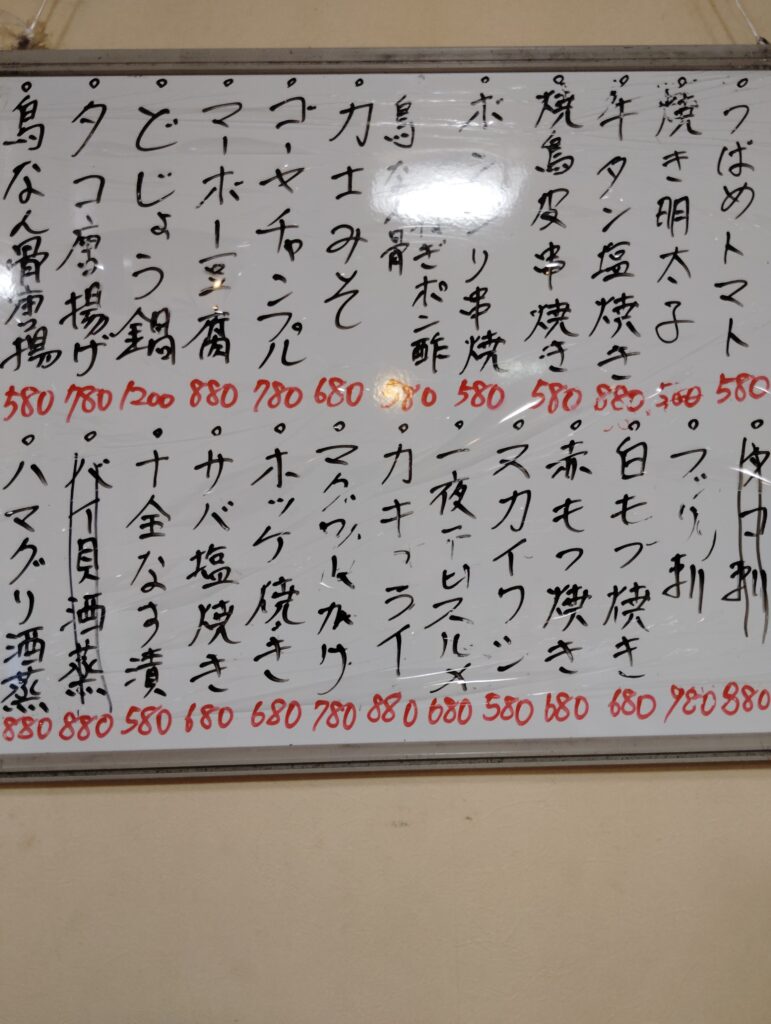 つばめトマト 580
焼き明太子 580
牛タン塩焼き 880
焼鳥皮串焼き 580
ボンジリ串焼 580
鳥なん骨ねぎポン酢 580
力士みそ 680
ゴーヤチャンプル 780
マーボー豆腐 880
どじょう鍋 1200
タコ唐揚げ 780
鳥なん骨唐揚 580
刺 880
ブリ刺 780
白もつ焼き 680
赤もつ焼き 680
ヌカイワシ 580
一夜干ヒスルメ 680
カキフライ 880
マグロ 780
ホッケ焼き 680
サバ塩焼き 680
十全なす漬 580
バイ貝酒蒸 880
ハマグリ酒蒸 880